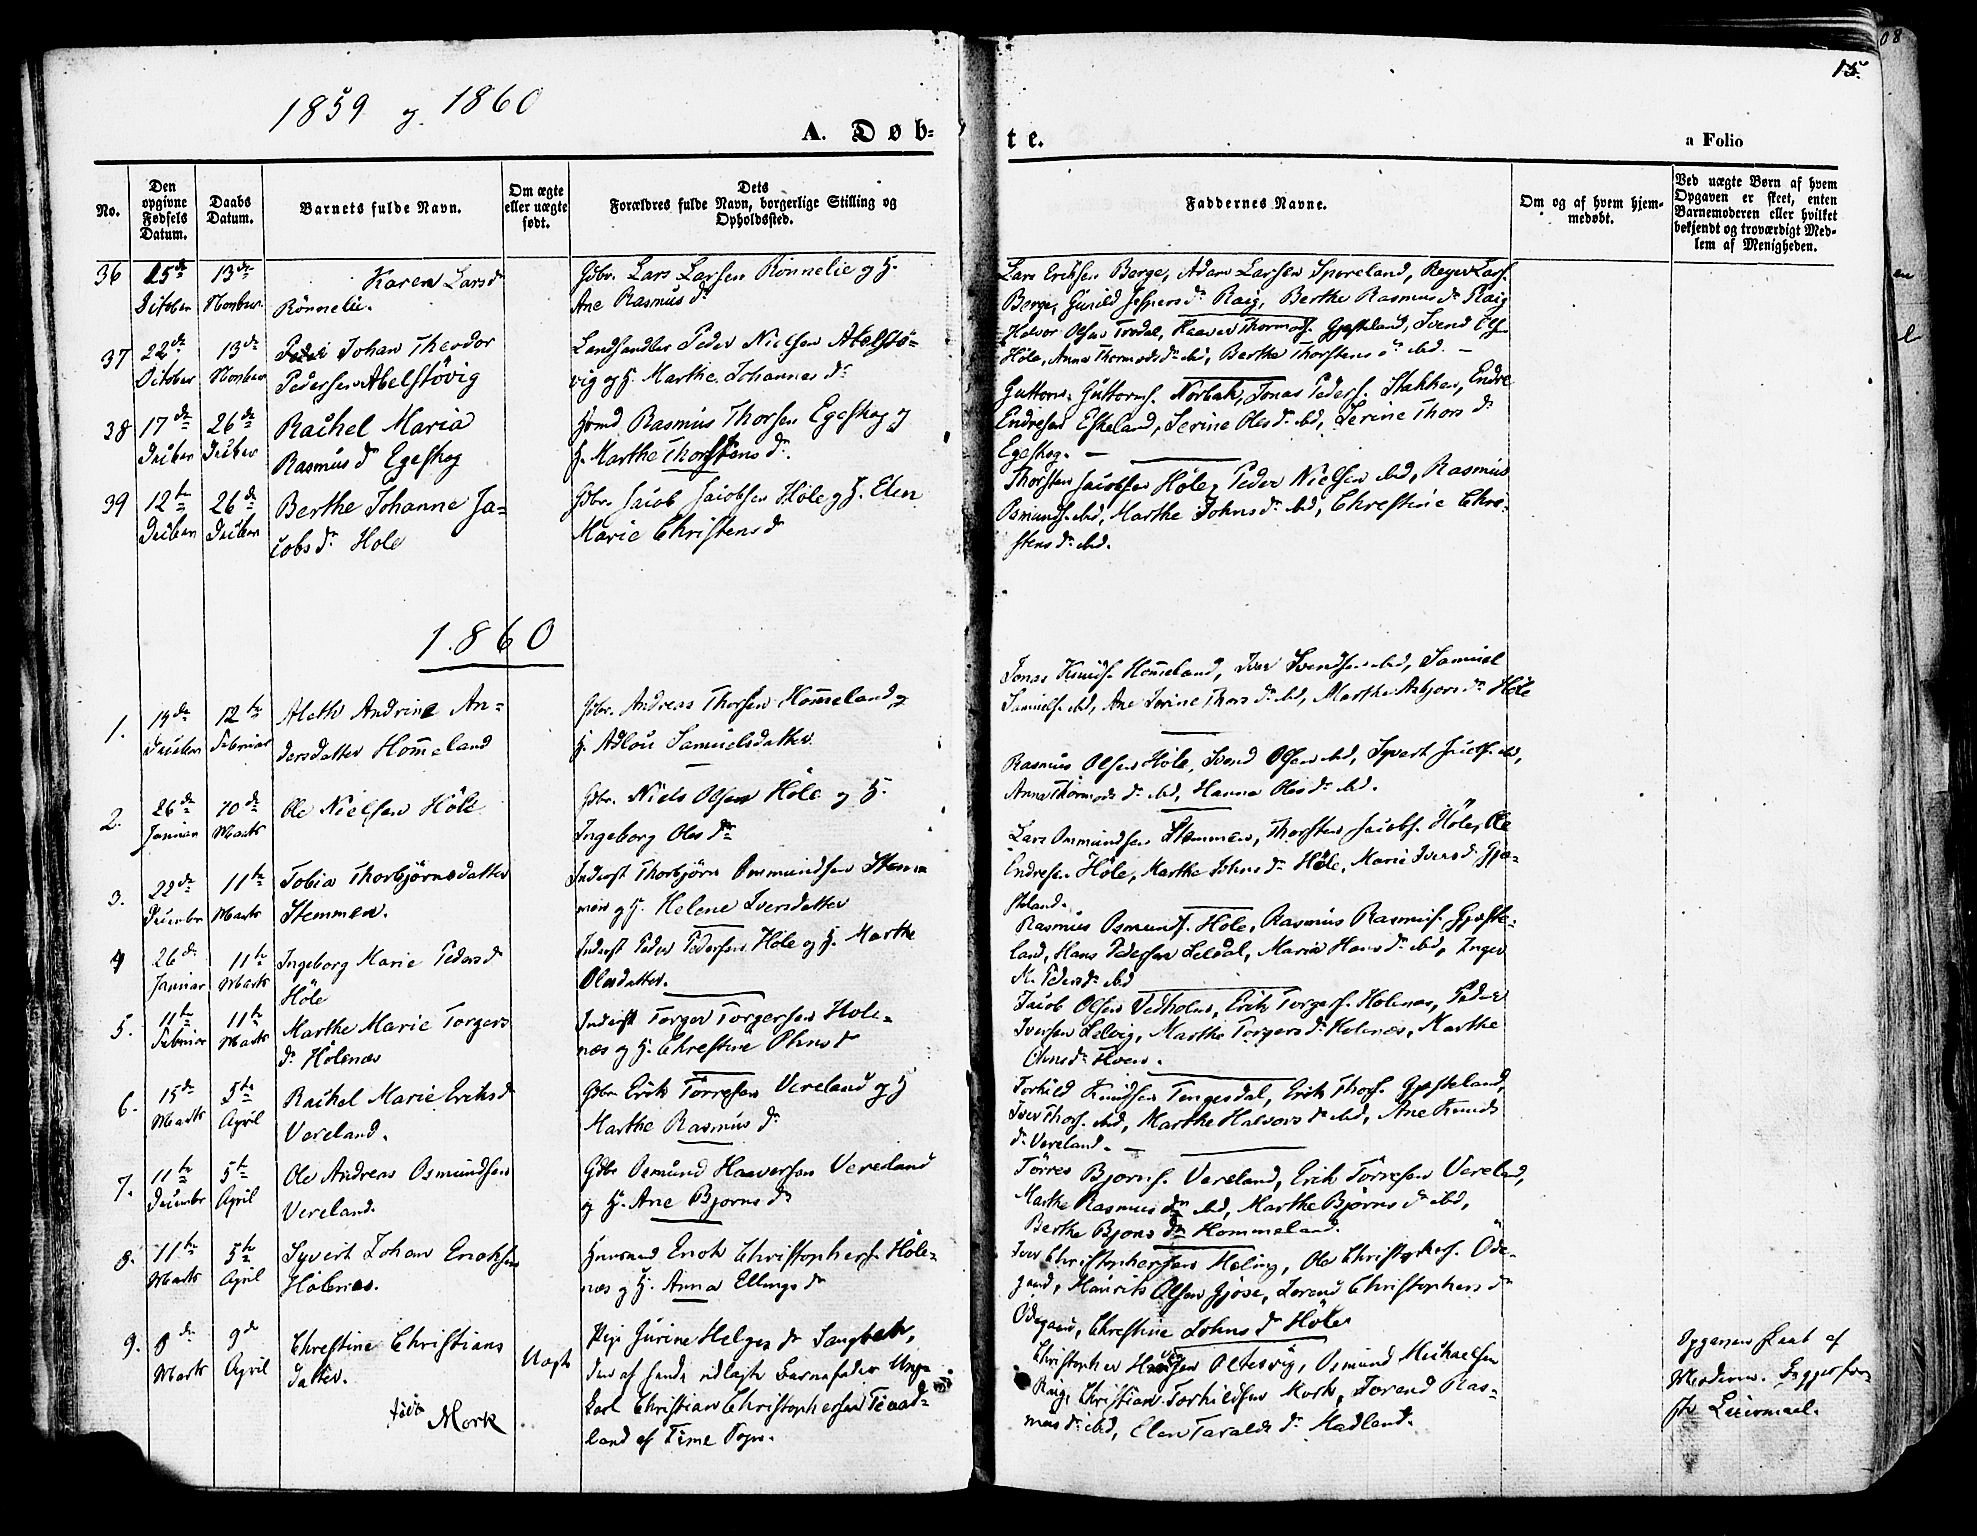 1859 og 1860
A. Døb-
te.
a Folio
15.
No.
Den opgivne Fødsels Datum.
Daabs Datum.
Barnets fulde Navn.
Om ægte eller uægte født.
Dets Forældres fulde Navn, borgerlige Stilling og Opholdssted.
Faddernes Navne.
Om og af hvem hjem-medøbt.
Ved uægte Børn af hvem Opgaven er skeet, enten Barnemoderen eller hvilket bekjendt og troværdigt Med-lem af Menigheden.
36
15de October
13de Novber
Karen Larsdr
Rönnelie.
Gdbr. Lars Larsen Rönnelie og H.
Ane Rasmusdr
Lars Eriksen Berge, Adam Larsen Sporeland, Reyer Lars.
Berge, Gunild Jespersdr Raig, Berthe Rasmusdr Raig
37
22de October
13de Novber
Johan Theodor
Pedersen Abelstövig
Landhandler Peder Nielsen Abelstö-
vig og H. Marthe Johannesdr
Halvor Olsen Trodal, Haaver Thormods. Gjesteland, Svend Ols.
Höle, Anna Thormodsdr ibd, Berthe Thorstensdr ibd. -
38
17de Decber
26de Decber
Rachel Maria
Rasmusdr Egeskog
Hrmd Rasmus Thorsen Egeskog og
H. Marthe Thorstensdr.
Guttorm Guttorms. Norbak, Jonas Peders. Stakken, Endre
Endresen Eskeland, Serine Olesdr ibd, Serine Thorsdr
Egeskog. -
39
12te Decber
26de Decber
Berthe Johanne Ja-
cobsdr Hole
Gdbr. Jacob Jacobsen Höle og H. Elen
Marie Christensdr
Thorsten Jacobsen Höle, Peder Nielsen ibd, Rasmus
Osmunds. ibd, Marthe Johnsdr ibd, Chrestine Chri-
stensdr ibd.
1860
1.
19de Decber
12te Februar
Aleth Andrine An-
dersdatter Hommeland
Gdbr. Andreas Thorsen Hommeland og
H. Adlou Samuelsdatter
Jonas Knuds. Hommeland, Iver Svendsen ibd, Samuel
Samuels. ibd, Ane Serine Thorsdr ibd, Marthe Asbjorsdr Höle
2.
26de Januar
10de Marts
Ole Nielsen Höle
Gdbr. Niels Olsen Höle og H.
Ingeborg Olesdr
Rasmus Olsen Höle, Svend Olsen ibd, Syvert Jacobs. ibd,
Anna Thormodsdr ibd, Hanna Olesdr ibd.
3.
22de Decembr
11te Marts
Tobia Thorbjörnsdatter
Stemmen.
Inderst Thorbjörn Ommundsen Stem-
men og H. Helene Iversdatter
Lars Ommundsen Stemmen, Thorsten Jacobs. Höle, Ole
Endresen Höle, Marthe Johnsdr Höle, Marie Iversdr Gje-
steland.
4
26de Januar
11te Marts
Ingeborg Marie Pedersdr
Höle
Inderst Peder Pedersen Höle og H. Marthe
Olesdatter.
Rasmus Osmunds. Höle, Rasmus Rasmus. Gjeste-
land, Hans Pedersen Seldal, Maria Hansdr ibd, Inger
M. Pedersdr ibd
5.
11te Februar
11te Marts
Marthe Marie Torgers
dr Hölenæs
Inderst Torger Torgersen Hole-
næs og H. Chrestine Ohnsdr
Jacob Olsen Vedholm, Erik Torgers. Holenæs, Peder
Iversen Selvig, Marthe Torgersdr Holenæs, Marthe
Ohnsdr Hven.
6.
15de Marts
5te April
Rachel Marie Eriksdr
Vereland.
Gdbr Erik Torresen Vereland og H
Marthe Rasmusdr
Torkild Knudsen Tengesdal, Erik Thors. Gjesteland,
Iver Thors. ibd, Marthe Halvorsdr ibd, Ane Knuds
dr Vereland. -
7.
11te Decembr
5te April
Ole Andreas Osmundsen
Vereland.
Gdbr Osmund Haaversen Vereland
og H. Ane Bjornsdr
Törres Bjorns. Vereland, Erik Törresen Vereland,
Marthe Rasmusdr ibd, Marthe Bjornsdr ibd,
Berthe Bjornsdr Hommeland.
8.
11te Marts
5te April
Syvert Johan Enoksen
Hölenæs.
Huusmd Enok Christophers. Höle-
næs og H. Anna Ellingsdr
Iver Christophersen Heling, Ole Christophers. Öde-
gaard, Hauvrik Olsen Gjöse, Sorend Christophersdr
Ödegaard, Chrestine Johnsdr Höle
9.
8de Marts
9de April
Chrestine Christians
datter.
födt Mork
Uægte
Pige Gurine Helgesdr Sangbak,
den af hende udlagte Barnefader Ungk.
Carl Christian Christophersen
land af Time Sogn.
Christopher Hansen Oltesvig, Osmund Michaelsen
Raig, Christian Torkildsen Mork, Sorend Ras-
musdr ibd, Elen Taraldsdr Madland.
Opgaven skeet af
Moderen. Begges før-
ste Leiermaal.